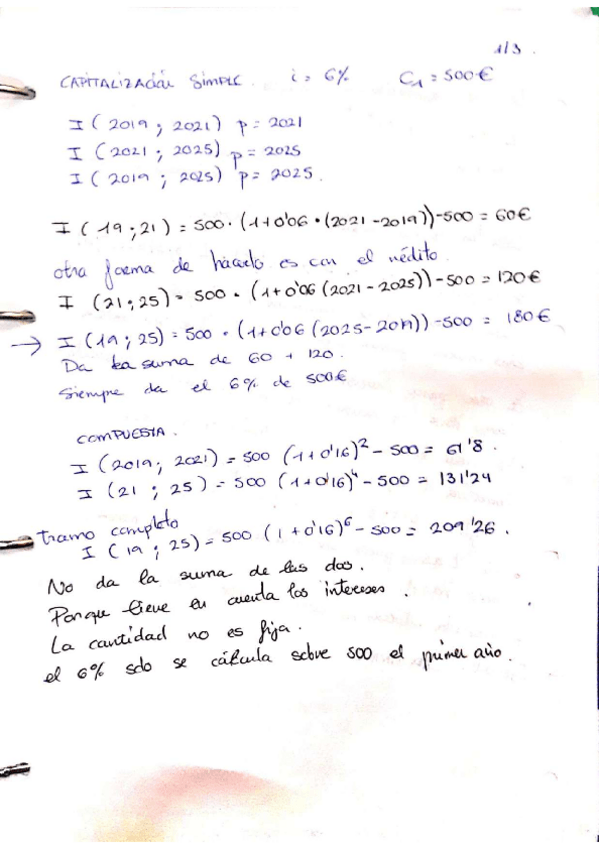 1/3.
CAPITALIZACIÓN SIMPLE. i = 6% C₁ = 500€
I (2019 ; 2021) p = 2021
I (2021 ; 2025) p = 2025
I (2019 ; 2025) p = 2025.
I (19 ; 21) = 500 · (1+0'06 · (2021 - 2019)) - 500 = 60€
otra forma de hacerlo es con el rédito.
I (21 ; 25) = 500 · (1+0'06 (2021 - 2025)) - 500 = 120€
→ I (19 ; 25) = 500 · (1+0'06 (2025 - 2019)) - 500 = 180€
Da la suma de 60 + 120.
Siempre da el 6% de 500€
COMPUESTA.
I (2019 ; 2021) = 500 (1+0'16)² - 500 = 61'8.
I (21 ; 25) = 500 (1+0'16)⁴ - 500 = 131'24
tramo completo
I (19 ; 25) = 500 (1+0'16)⁶ - 500 = 209'26.
No da la suma de las dos.
Porque tiene en cuenta los intereses.
La cantidad no es fija.
el 6% solo se cálcula sobre 500 el primer año.